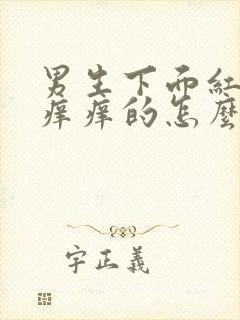 男生下面紅
痒痒的怎麼
字正義